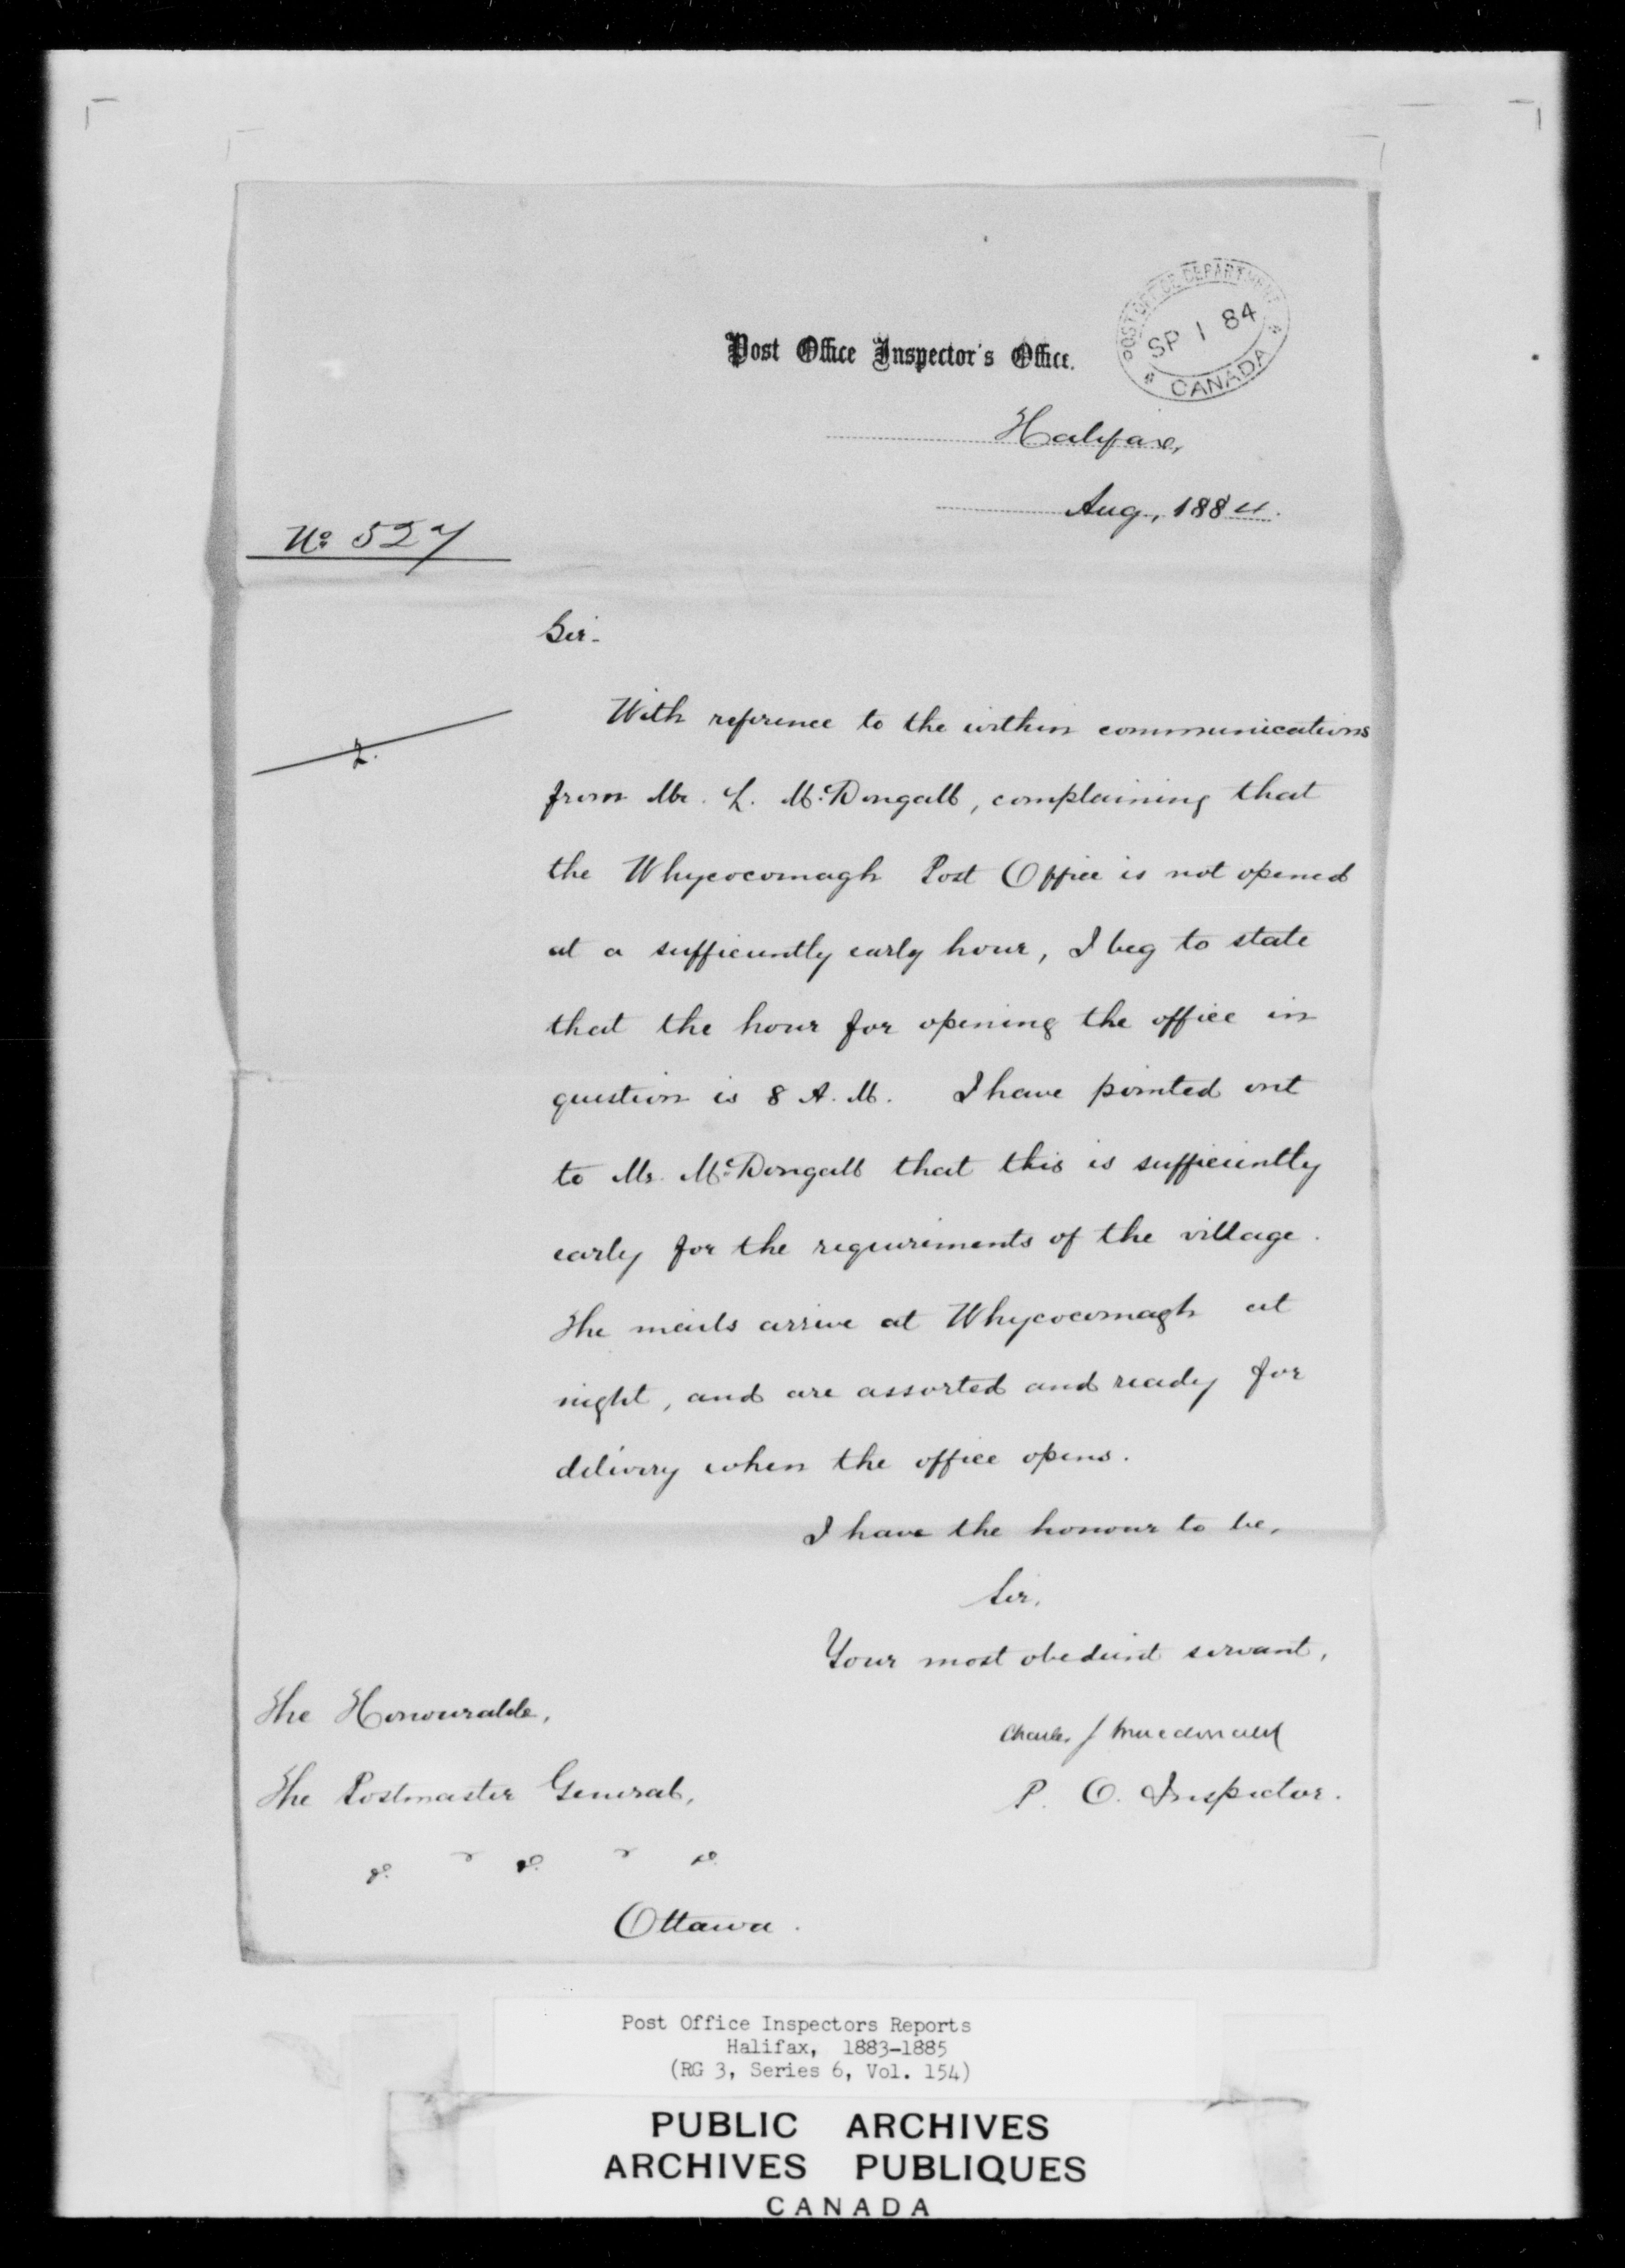 Post Office Inspector's Office.
POST OFFICE DEPARTMENT
SP 1 84
CANADA
Halifax,
Aug, 1884.
No. 527
Sir-
2.
With reference to the within communications
from Mr. L. McDougall, complaining that
the Whycocomagh Post Office is not opened
at a sufficiently early hour, I beg to state
that the hour for opening the office in
question is 8 A.M. I have pointed out
to Mr. McDougall that this is sufficiently
early for the requirements of the village.
The mails arrive at Whycocomagh at
night, and are assorted and ready for
delivery when the office opens.
I have the honour to be,
Sir,
Your most obedient servant,
Charles J Macdonald
P. O. Inspector.
The Honourable,
The Postmaster General,
Ottawa.
Post Office Inspectors Reports
Halifax, 1883-1885
(RG 3, Series 6, Vol. 154)
PUBLIC ARCHIVES
ARCHIVES PUBLIQUES
CANADA